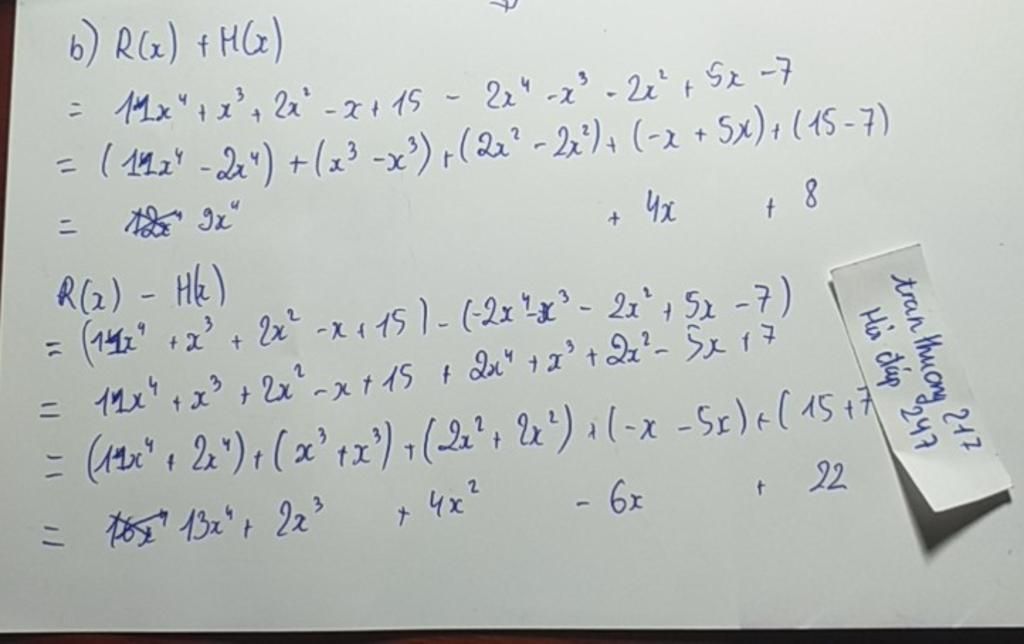 b) R(x) + H(x)
= 11x⁴ + x³ + 2x² - x + 15 - 2x⁴ - x³ - 2x² + 5x - 7
= (11x⁴ - 2x⁴) + (x³ - x³) + (2x² - 2x²) + (-x + 5x) + (15 - 7)
= 9x⁴ + 4x + 8
R(x) - H(x)
= (11x⁴ + x³ + 2x² - x + 15) - (-2x⁴ - x³ - 2x² + 5x - 7)
= 11x⁴ + x³ + 2x² - x + 15 + 2x⁴ + x³ + 2x² - 5x + 7
= (11x⁴ + 2x⁴) + (x³ + x³) + (2x² + 2x²) + (-x - 5x) + (15 + 7
= 13x⁴ + 2x³ + 4x² - 6x + 22
tranthuong 217
Hỏi đáp 247